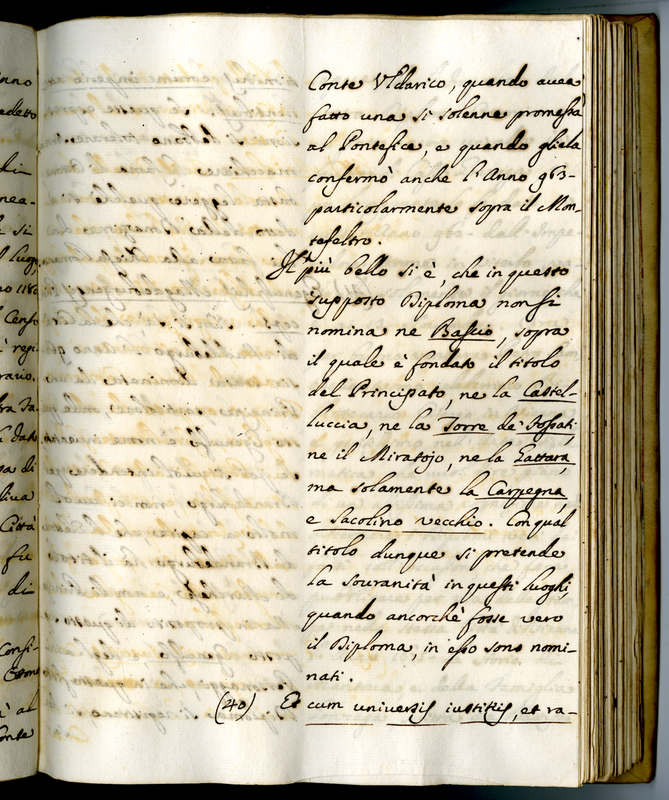 nno
edetto
di
nea-
e si
l Luogo
no 1180
l Censo
regi-
rario.
fra Ta-
dato
sa di
liva
Città
fu
di
Consi-
à al
onte
Conte Vldarico, quando avea
fatto una sì solenne promessa
al Pontefice, e quando gliela
confermò anche l'Anno 963-
particolarmente sopra il Mon-
tefeltro.
Il più bello si è, che in questo
supposto Diploma non si
nomina ne Bascio, sopra
il quale è fondato il titolo
del Principato, ne la Castel-
luccia, ne la Torre de' Fossati,
ne il Miratojo, ne la Gattara,
ma solamente la Carpegna,
e Sacolino vecchio. Con qual
titolo dunque si pretende
la souranità in questi luoghi,
quando ancorchè fosse vero
il Diploma, in esso sono nomi-
nati.
(40) Et cum universis iustitijs, et ra-